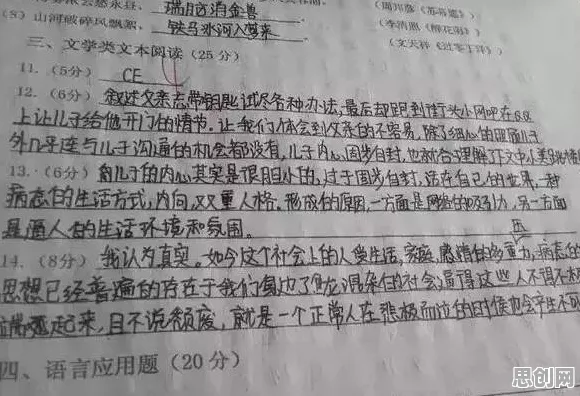 瑞脑消金兽 (周邦彦《苏幕遮》)
(8) 山河破碎风飘絮, 铁马冰河入梦来 (文天祥《过零丁洋》)
三、文学类文本阅读(25分)
11.(5分) CE
12.(6分) 叙述父亲忘带钥匙试尽各种办法,最后却跑到街头小网吧在QQ
上让儿子给他开门的情节。让我们体会到父亲的不容易,除了细心的照顾儿子
外几乎连与儿子沟通的机会都没有,儿子内心固步自封,也就合理解了文中小
13.(6分) 儿子的内心其实是很胆小的,过于固步自封,活在自己的世界,一种
病态的生活方式,内向,双重人格。形成的原因,一方面是网络的吸引力,另一方面
是逼人的生活环境和氛围。
14.(8分) 我认为真实。如今这个社会上的人受生活,家庭,感情的多重压力,病态的
思想已经普遍的存在于我们身边了鱼龙混杂的社会,逼得这些人不得不
起来,且不说颓废,就是一个正常人在 的时候也会产生不
四、语言应用题(20分)
思创网